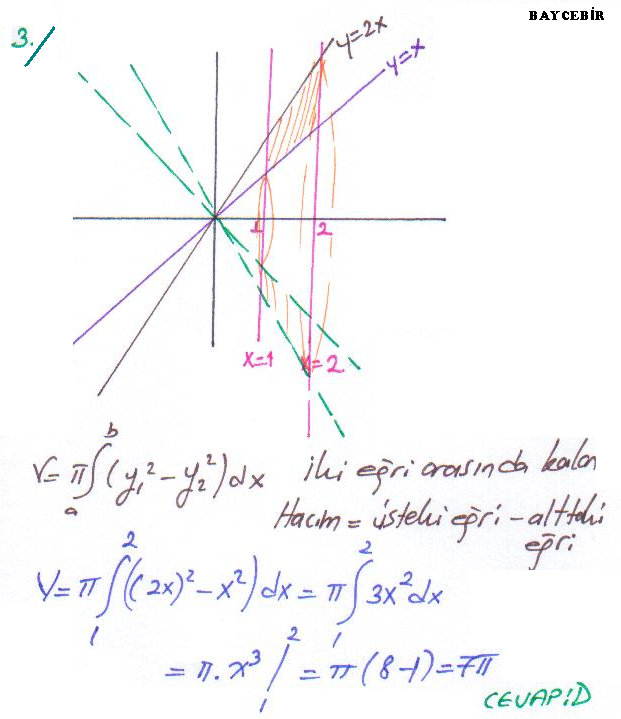 BAYCEBİR
3./
y=2x
y=x
1
2
x=1
x=2
V= π∫ₐᵇ (y₁² - y₂²) dx İki eğri arasında kalan
Hacım = üsteki eğri - alttaki
eğri
V= π∫₁² ((2x)² - x²) dx = π∫₁² 3x² dx
= π. x³ /₁² = π (8-1) = 7π
CEVAP:D